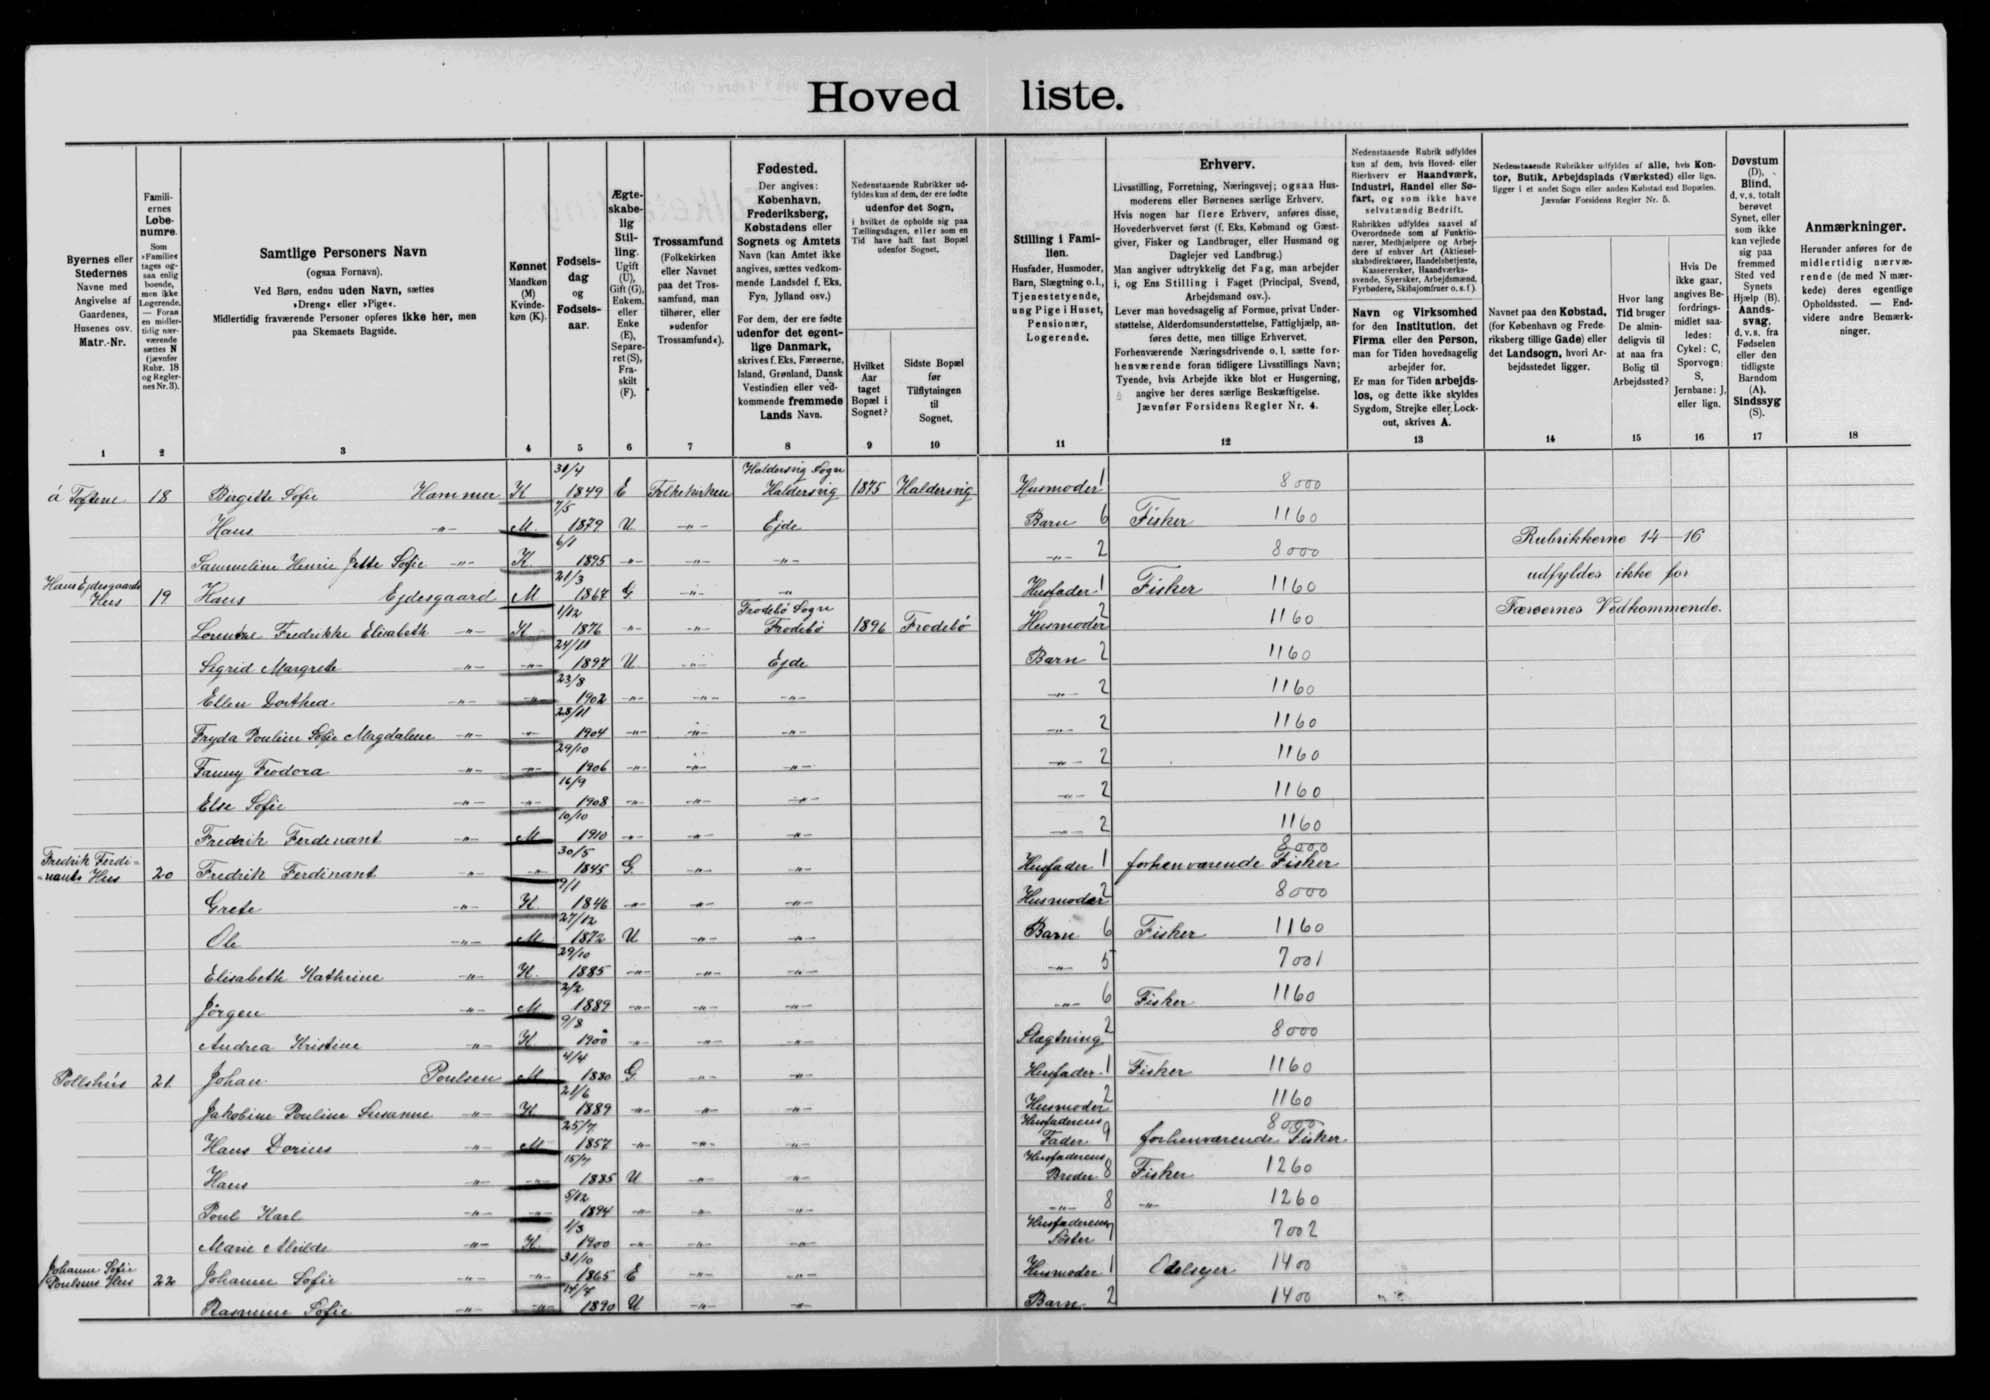 Hoved liste.
Byernes eller Stedernes Navne med Angivelse af Gaardenes, Husenes osv. Matr.-Nr.
Familiernes Løbenumre.
Som »Familie« tages ogsaa enlig boende, men ikke Logerende. — Foran en midlertidig nærværende sættes N (jævnfør Rubr. 18 og Reglernes Nr. 3).
Samtlige Personers Navn
(ogsaa Fornavn).
Ved Børn, endnu uden Navn, sættes
»Dreng« eller »Pige«.
Midlertidig fraværende Personer opføres ikke her, men
paa Skemaets Bagside.
Kønnet Mandkøn (M) Kvindekøn (K).
Fødselsdag og Fødselsaar.
Ægteskabelig Stilling. Ugift (U), Gift (G), Enkem. eller Enke (E), Separeret (S), Fraskilt (F).
Trossamfund (Folkekirken eller Navnet paa det Trossamfund, man tilhører, eller »udenfor Trossamfund«).
Fødested.
Der angives: København, Frederiksberg, Købstadens eller Sognets og Amtets Navn (kan Amtet ikke angives, sættes vedkommende Landsdel f. Eks. Fyn, Jylland osv.)
For dem, der ere fødte udenfor det egentlige Danmark, skrives f. Eks. Færøerne, Island, Grønland, Dansk Vestindien eller vedkommende fremmede Lands Navn.
Nedenstaaende Rubrikker udfyldes kun af dem, der ere fødte udenfor det Sogn, i hvilket de opholde sig paa Tællingsdagen, eller som en Tid have haft fast Bopæl udenfor Sognet.
Hvilket Aar taget Bopæl i Sognet?
Sidste Bopæl før Tilflytningen til Sognet.
Stilling i Familien.
Husfader, Husmoder, Barn, Slægtning o.l., Tjenestetyende, ung Pige i Huset, Pensionær, Logerende.
Erhverv.
Livsstilling, Forretning, Næringsvej; ogsaa Husmoderens eller Børnenes særlige Erhverv.
Hvis nogen har flere Erhverv, anføres disse, Hovederhvervet først (f. Eks. Købmand og Gæstgiver, Fisker og Landbruger, eller Husmand og Daglejer ved Landbrug.)
Man angiver udtrykkelig det Fag, man arbejder i, og Ens Stilling i Faget (Principal, Svend, Arbejdsmand osv.).
Lever man hovedsagelig af Formue, privat Understøttelse, Alderdomsunderstøttelse, Fattighjælp, anføres dette, men tillige Erhvervet.
Forhenværende Næringsdrivende o. l. sætte forhenværende foran tidligere Livsstillings Navn; Tyende, hvis Arbejde ikke blot er Husgerning, angive her deres særlige Beskæftigelse.
Jævnfør Forsidens Regler Nr. 4.
Nedenstaaende Rubrik udfyldes kun af dem, hvis Hoved- eller Bierhverv er Haandværk, Industri, Handel eller Søfart, og som ikke have selvstændig Bedrift.
Rubrikken udfyldes saavel af Overordnede som af Funktionærer, Medhjælpere og Arbejdere af enhver Art (Aktieselskabsdirektører, Handelsbetjente, Kasserersker, Haandværkssvende, Syersker, Arbejdsmænd, Fyrbødere, Skibsjomfruer o. s. f.).
Navn og Virksomhed for den Institution, det Firma eller den Person, man for Tiden hovedsagelig arbejder for.
Er man for Tiden arbejdsløs, og dette ikke skyldes Sygdom, Strejke eller Lockout, skrives A.
Nedenstaaende Rubrikker udfyldes af alle, hvis Kontor, Butik, Arbejdsplads (Værksted) eller lign. ligger i et andet Sogn eller anden Købstad end Bopælen.
Jævnfør Forsidens Regler Nr. 5.
Navnet paa den Købstad, (for København og Frederiksberg tillige Gade) eller det Landsogn, hvori Arbejdsstedet ligger.
Hvor lang Tid bruger De almindeligvis til at naa fra Bolig til Arbejdssted?
Hvis De ikke gaar, angives Befordringsmidlet saaledes: Cykel: C, Sporvogn: S, Jernbane: J, eller lign.
Døvstum (D), Blind, d. v. s. totalt berøvet Synet, eller som ikke kan vejlede sig paa fremmed Sted ved Synets Hjælp (B). Aandssvag, d. v. s. fra Fødselen eller den tidligste Barndom (A). Sindssyg (S).
Anmærkninger.
Herunder anføres for de midlertidig nærværende (de med N mærkede) deres egentlige Opholdssted. — Endvidere andre Bemærkninger.
1 2 3 4 5 6 7 8 9 10 11 12 13 14 15 16 17 18
á Toftene 18 Birgitte Sofie Hammer K 31/4 1849 E Folkekirken Haldersvig Sogn Haldersvig 1875 Haldersvig Husmoder 1 8000
Hans -"- M 7/5 1879 U -"- Ejde Barn 6 Fisker 1160
Sammeline Henrie Jette Sofie -"- K 6/1 1895 -"- -"- -"- -"- 2 8000
Rubrikkerne 14-16
udfyldes ikke for
Færøernes Vedkommende.
Hans Ejdesgaards Hus 19 Hans Ejdesgaard M 21/3 1867 G -"- -"- Husfader 1 Fisker 1160
Lorentse Fredrikke Elisabeth -"- K 1/12 1876 -"- -"- Frodebø Sogn Frodebø 1896 Frodebø Husmoder 2 1160
Sigrid Margrete -"- -"- 24/11 1897 U -"- Ejde Barn 2 1160
Ellen Dorthea -"- -"- 23/8 1902 -"- -"- -"- -"- 2 1160
Fryda Pouline Sofie Magdalene -"- -"- 28/11 1904 -"- -"- -"- -"- 2 1160
Fanny Feodora -"- -"- 29/10 1906 -"- -"- -"- -"- 2 1160
Else Sofie -"- -"- 16/9 1908 -"- -"- -"- -"- 2 1160
Fredrik Ferdenant -"- M 10/10 1910 -"- -"- -"- -"- 2 1160
Fredrik Ferdinants Hus 20 Fredrik Ferdinant -"- -"- 30/5 1845 G -"- -"- Husfader 1 forhenværende Fisker 8000
Grete -"- K 9/1 1846 -"- -"- -"- Husmoder 2 8000
Ole -"- M 27/12 1872 U -"- -"- Barn 6 Fisker 1160
Elisabeth Kathrine -"- K 29/10 1885 -"- -"- -"- -"- 5 7001
Jørgen -"- M 2/2 1889 -"- -"- -"- -"- 6 Fisker 1160
Andrea Kristine -"- K 9/8 1900 -"- -"- -"- Slægtning 2 8000
Pollshús 21 Johan Poulsen M 4/4 1880 G -"- -"- Husfader 1 Fisker 1160
Jakobine Pouline Susanne -"- K 21/6 1889 -"- -"- -"- Husmoder 2 1160
Hans Dorius -"- M 25/7 1857 -"- -"- -"- Husfaderens Fader 9 forhenværende Fisker 8000
Hans -"- -"- 15/7 1885 U -"- -"- Husfaderens Broder 8 Fisker 1260
Poul Karl -"- -"- 5/12 1894 -"- -"- -"- -"- 8 -"- 1260
Marie Alvilde -"- K 1/3 1900 -"- -"- -"- Husfaderens Søster 7 7002
Johanne Sofie Poulsens Hus 22 Johanne Sofie -"- -"- 31/10 1865 E -"- -"- Husmoder 1 Odelsejer 1400
Rasmine Sofie -"- -"- 14/7 1890 U -"- -"- Barn 2 1400